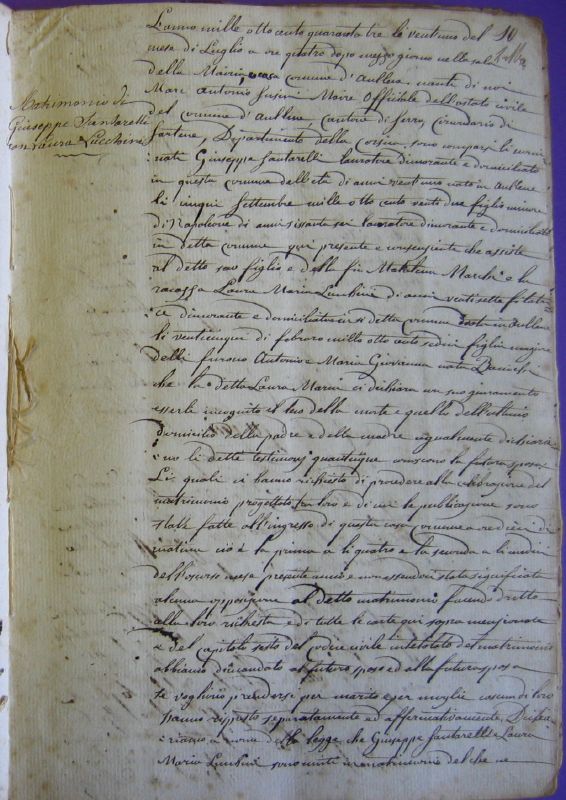 L'anno mille otto cento quaranta tre li ventuno del
mese di Luglio a ore quattro dopo mezzo giorno nella sala
della Mairia, casa comune d'Aullene, nanti di noi
Marc Antonio Susini Maire Offiziale dell'estato civile
del comune d'Aullene, cantone di Serra, circondario di
Sartene, Dipartimento della Corsica, sono comparsi li
nati Giuseppe Santarelli lavoratore dimorante e domiciliato
in questa comune dell'età di anni vent'uno nato in Aullene
li cinque Settembre mille otto cento venti due figlio minore
di Napoleone di anni sissanta sei lavoratore dimorante e domiciliato
in detta comune qui presente e consenziente che assiste
il detto suo figlio e della fu Marchi e la
ragazza Laura Maria Lucchini di anni venti sette filatri
ce dimorante e domiciliata in detta comune nata in Aullene
li venticinque di febraro mille otto cento sedici figlia magiore
delli furono Antonio e Maria Giovanna nata
che la detta Laura Maria ci dichiara con suo giuramento
esserli incognito il loco della morte e quello dell'ultimo
domicilio della padre e della madre ugualmente dichiara
no li dette testimonj quantunque conoscono la futura sposa
Li quali ci hanno richiesto di procedere alla celebrazione del
matrimonio progettato tra loro e di cui le publicazione sono
state fatte all'ingresso di questa casa comune a re dieci di
matina cio è la prima a li quatro e la seconda a li undici
dell' mese presente anno e non essendoci stata significata
alcuna opposizione al detto matrimonio facendo dritto
alla loro richiesta e di tutte le carte qui sopra menzionate
e del capitolo sesto del codice civile intitolato del matrimonio
abbiamo dimandato al futuro sposo ed alla futura sposa
se vogliono prendersi per marito e per moglie ciascun di loro
hanno risposto separatamente ed affermativamente, Dichia
riamo a nome della legge che Giuseppe Santarelli e Laura
Maria Lucchini sono uniti in matrimonio del che ne
Matrimonio di
Giuseppe Santarelli
con Laura Lucchini
10